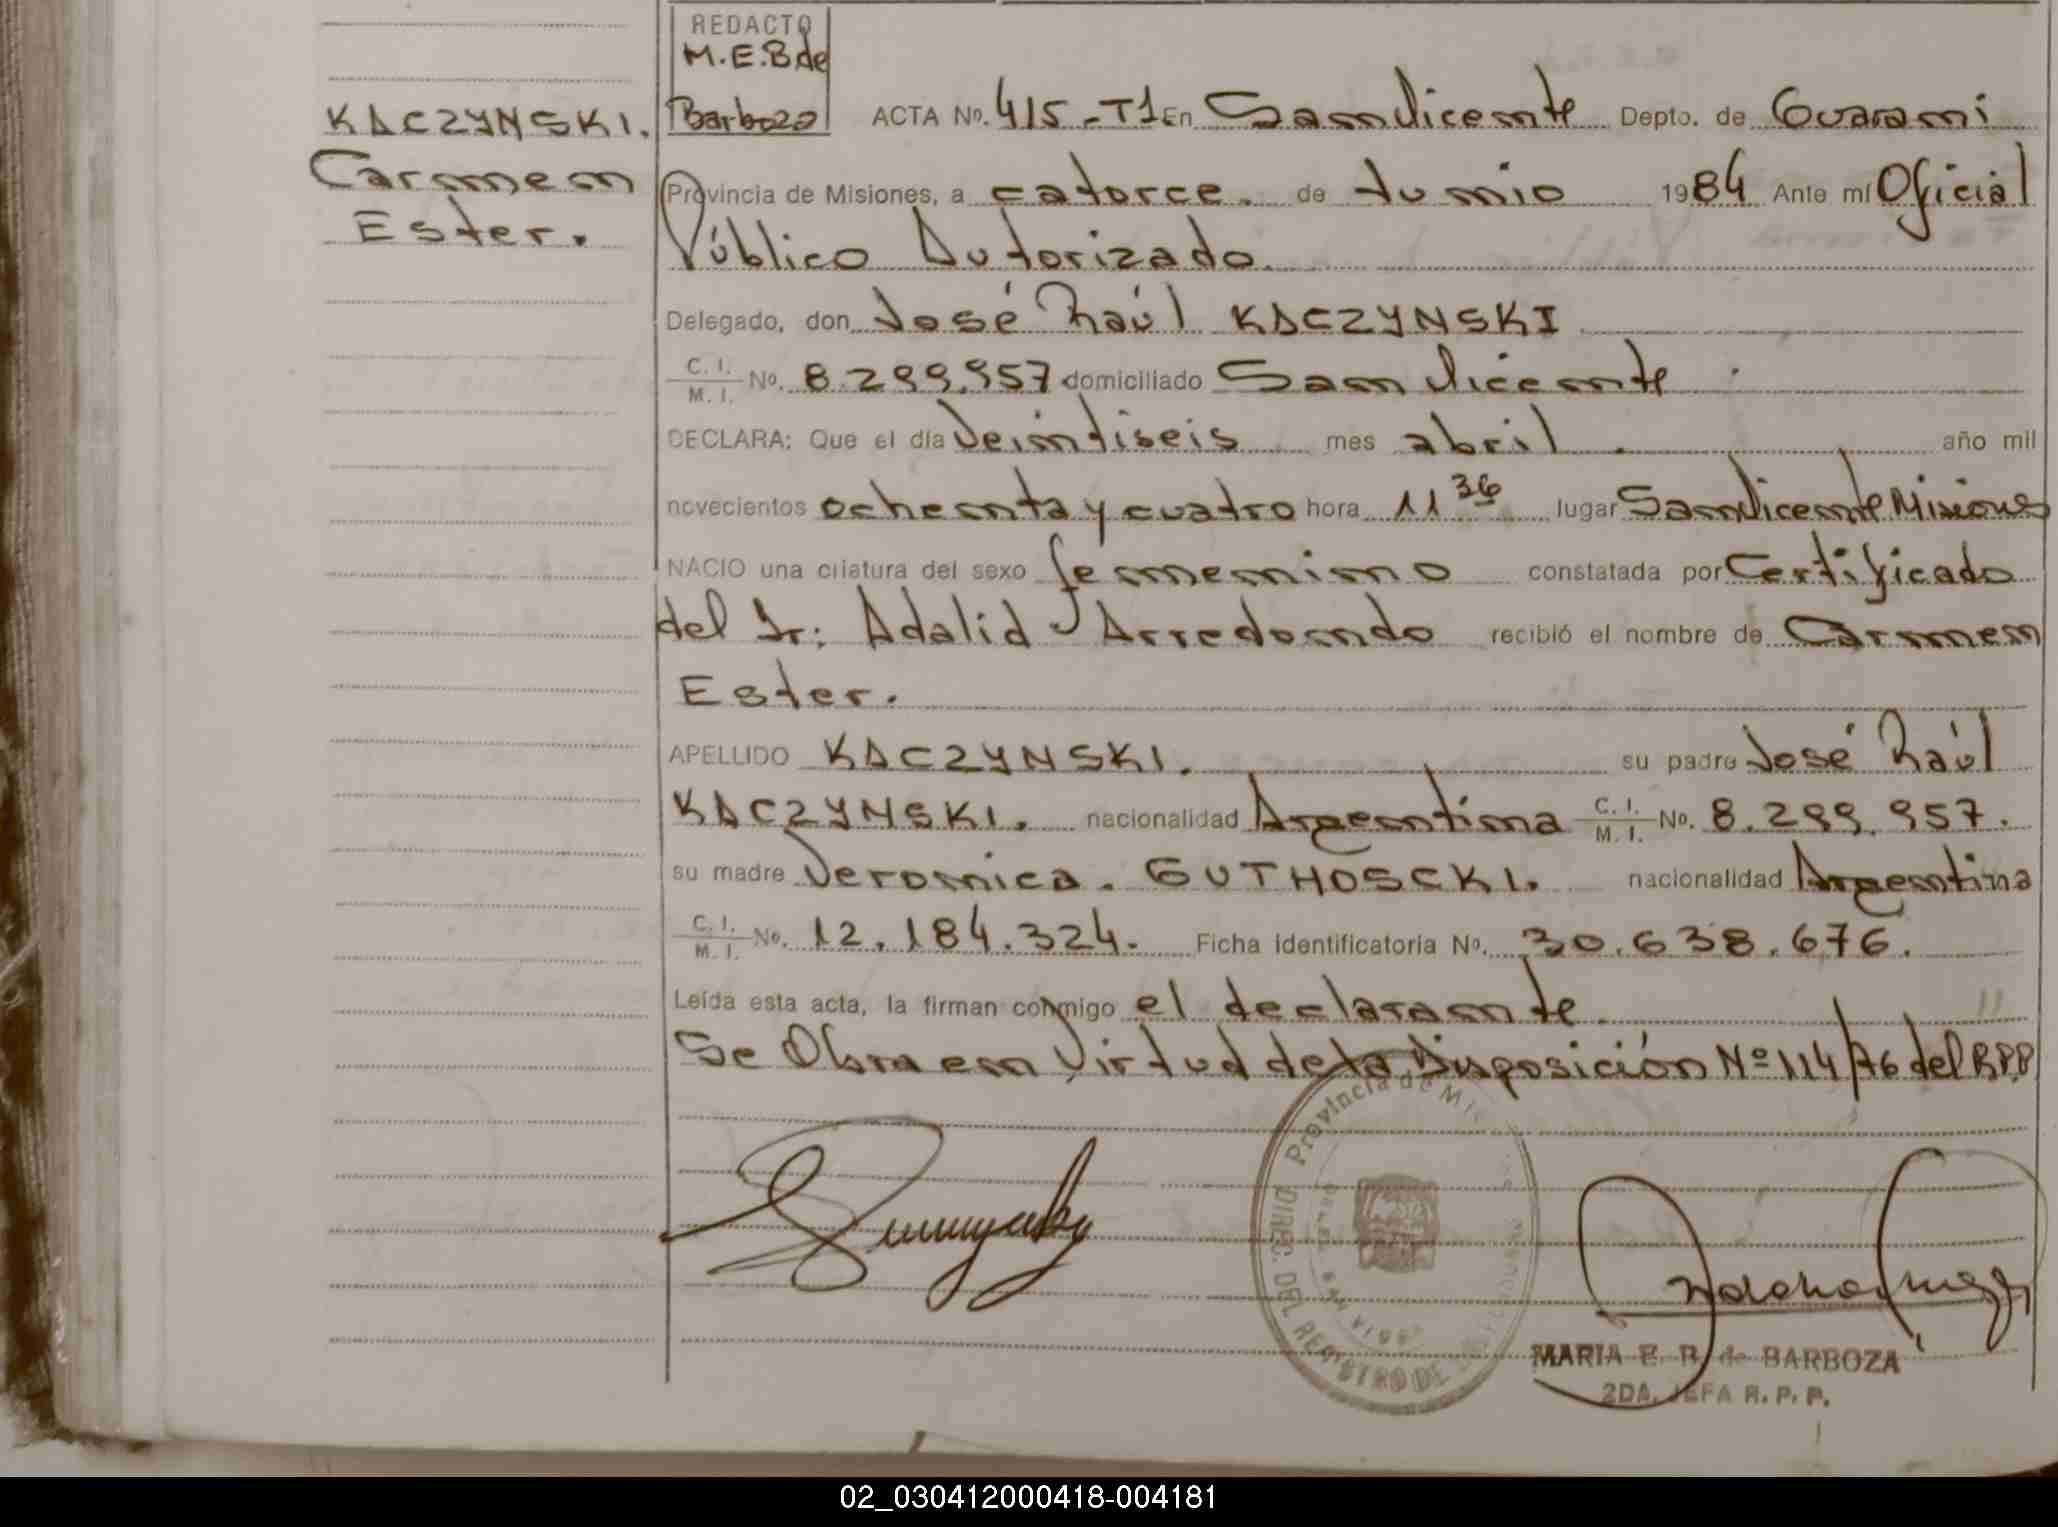 KACZYNSKI.
Carmen
Ester.
REDACTO
M.E.B de
Barboza
ACTA Nº. 415-T1 En San Vicente Depto. de Guarani
Provincia de Misiones, a catorce. de Junio 1984 Ante mí Oficial
Público Autorizado.
Delegado, don José Raúl KACZYNSKI
C. I. / M. I. Nº. 8.299.957 domiciliado San Vicente
DECLARA: Que el día Veintiseis mes abril. año mil
novecientos ochenta y cuatro hora 11 36 lugar San Vicente Misiones
NACIO una criatura del sexo femenino constatada por Certificado
del Dr: Adalid J Arredondo recibió el nombre de Carmen
Ester.
APELLIDO KACZYNSKI. su padre José Raúl
KACZYNSKI. nacionalidad Argentina C. I. / M. I. Nº. 8.299.957.
su madre Veronica. GUTHOSCKI. nacionalidad Argentina
C. I. / M. I. Nº. 12.184.324. Ficha identificatoria Nº. 30.638.676.
Leída esta acta, la firman conmigo el declarante.
Se Obra en Virtud de la Disposición Nº 114/76 del R.P.P
Provincia de Mi
DIREC. DEL REGISTRO DE
MARIA E. B. de BARBOZA
2DA. JEFA R. P. P.
02_030412000418-004181